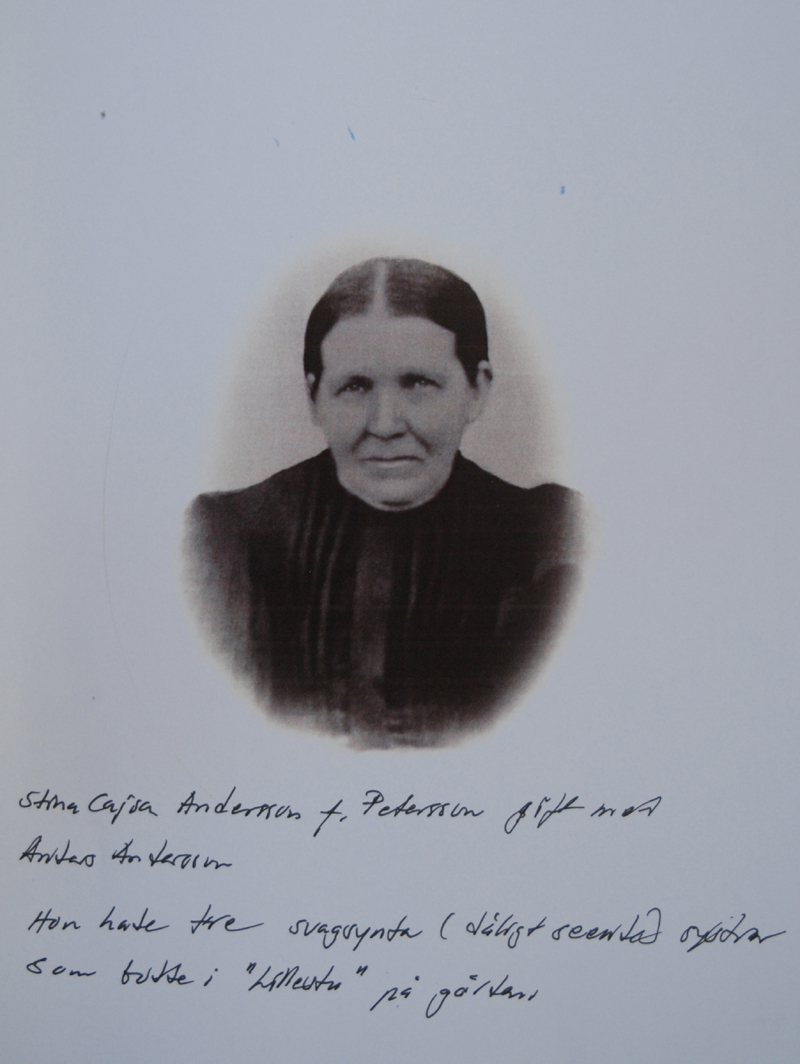 Stina Cajsa Andersson f. Petersson gift med
Anders Andersson
Hon hade tre svagsynta (dåligt seende) systrar
som bodde i "Lillestu" på gården